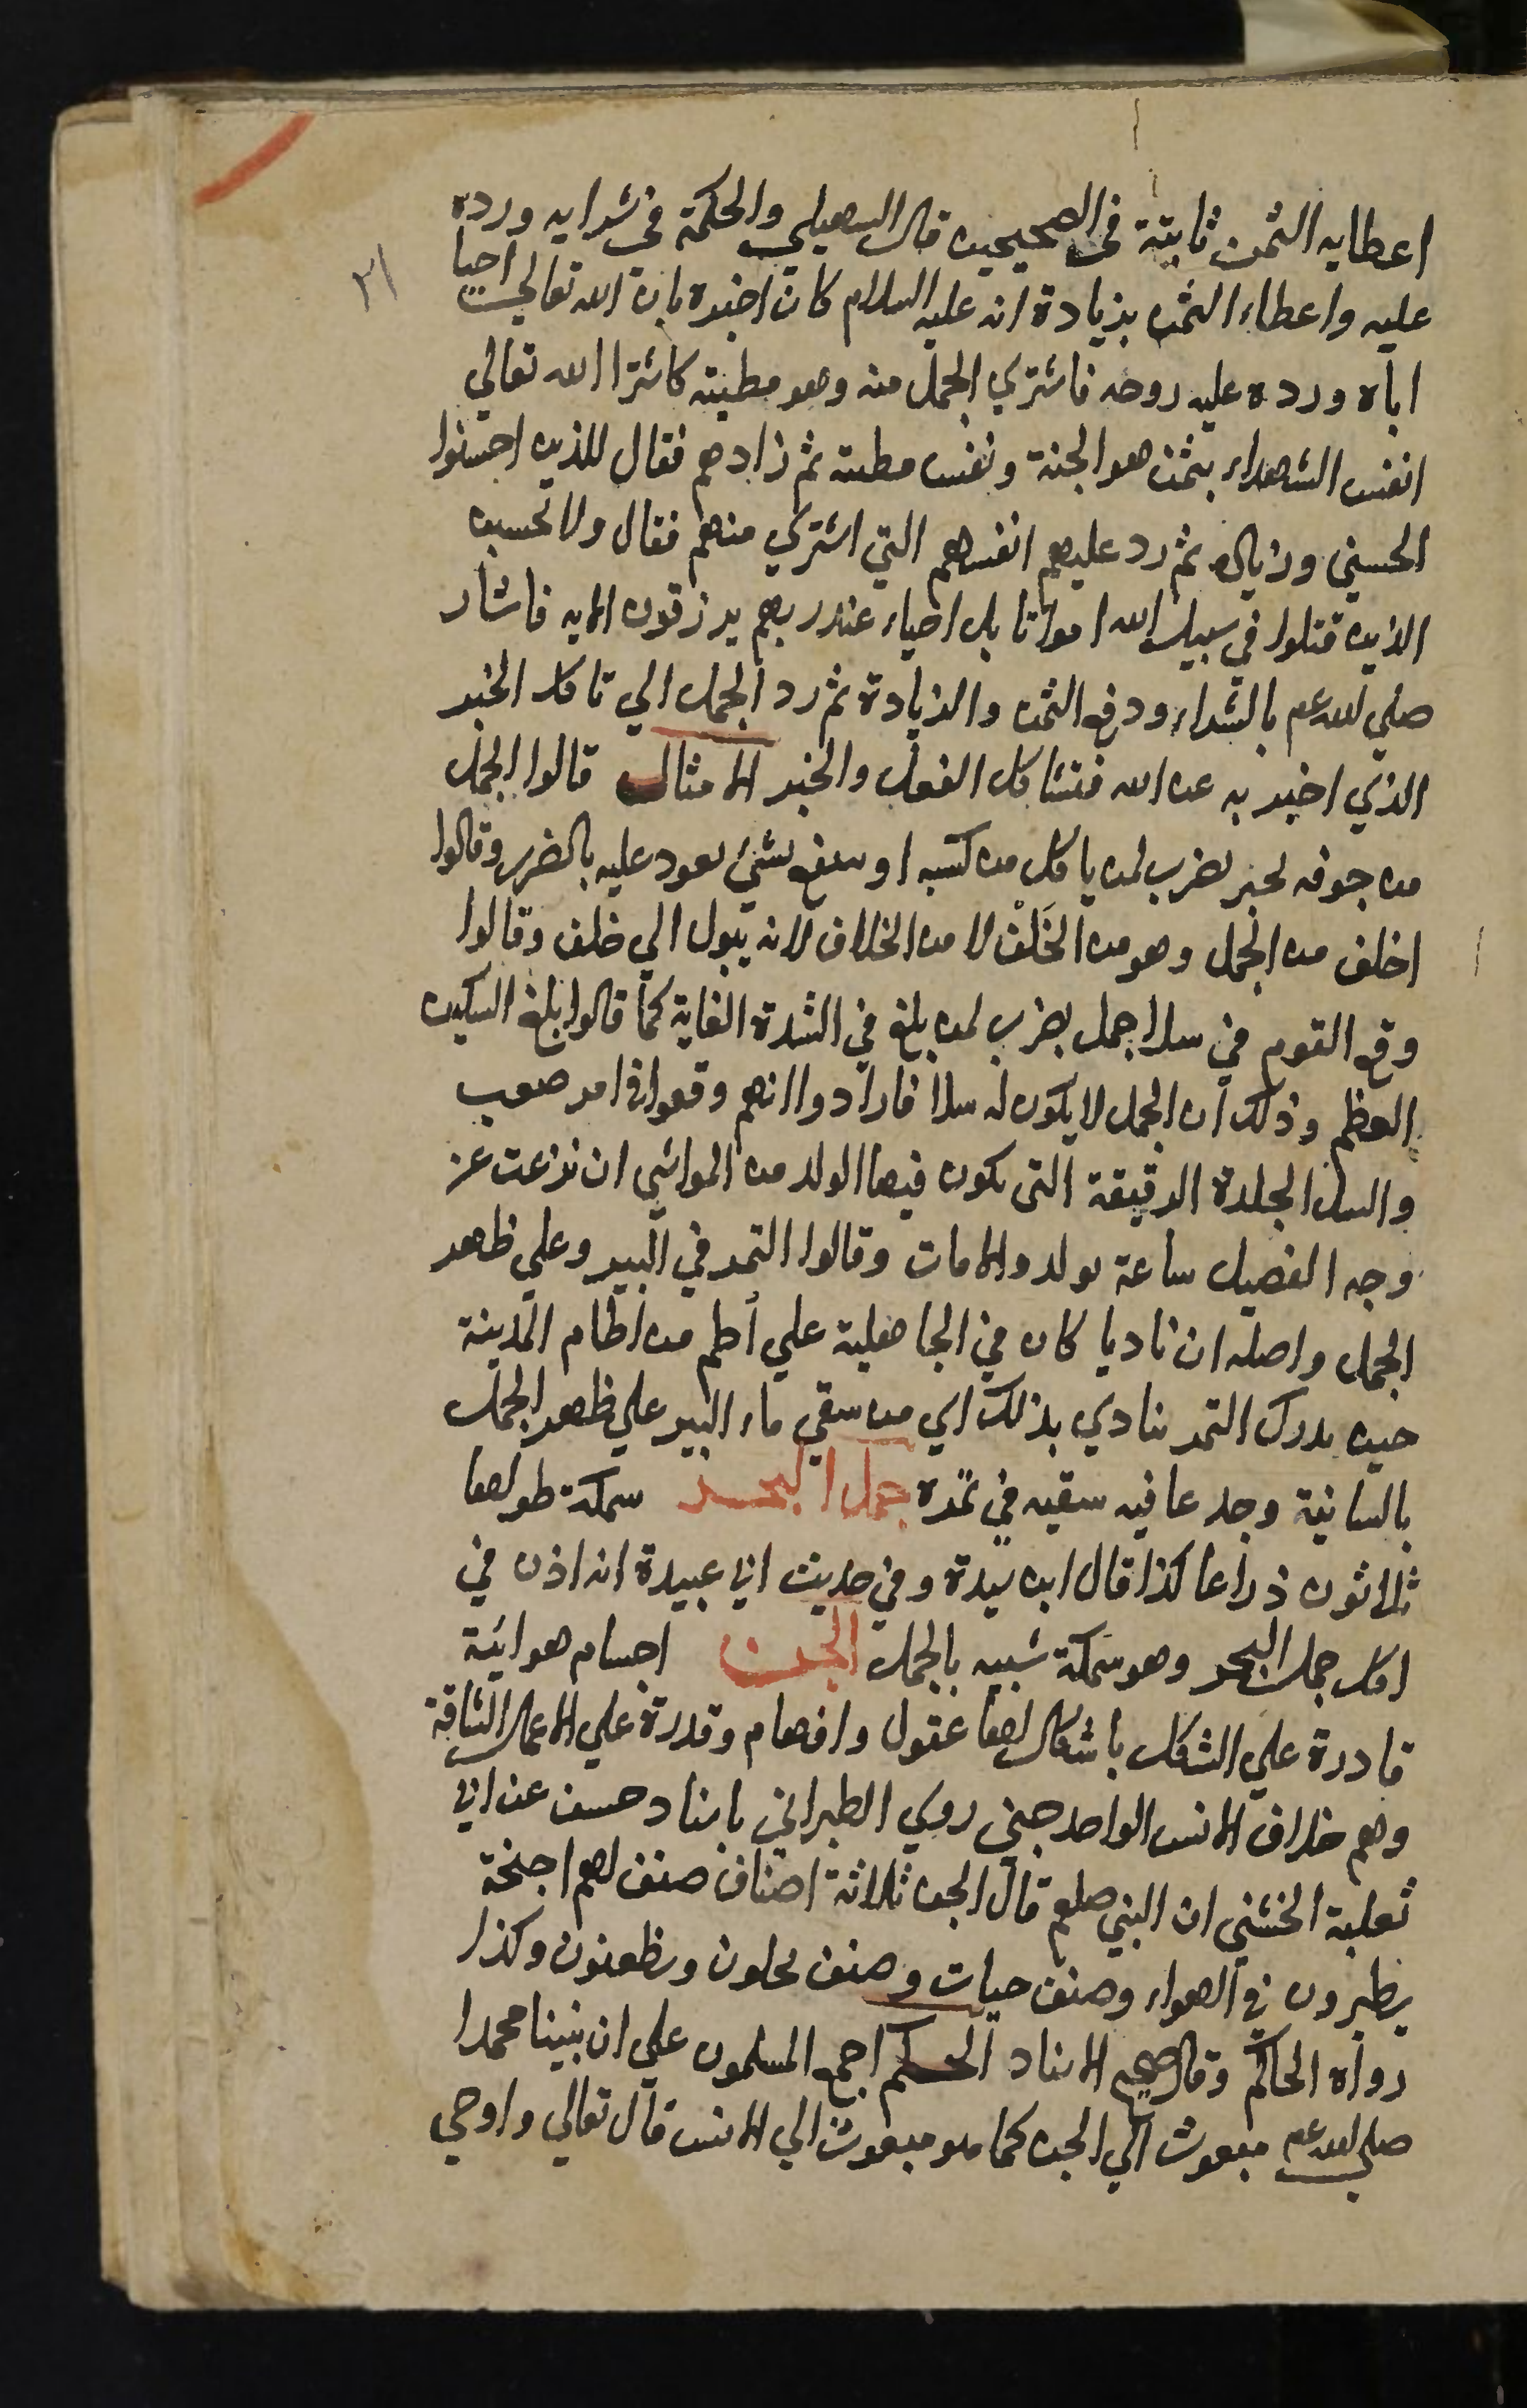 اعطايه الثمن ثابتة في الصحيحين قال السهيلي والحكمة في شرايه ورده
٢١
عليه واعطاء الثمن بزيادة انه عليه السلام كان اخبره بان الله تعالي احيا
اباه ورده عليه روحه فاشتري الجمل منه وهو مطيته كاشترا الله تعالي
انفس الشهداء بثمن هو الجنة ونفس مطيته ثم زادهم فقال للذين احسنوا
الحسني وزيادة ثم رد عليهم انفسهم التي اشتري منهم فقال ولا تحسبن
الذين قتلوا في سبيل الله امواتا بل احياء عند ربهم يرزقون الايه فاشار
صلي الله عم بالشراء ودفع الثمن والزيادة ثم رد الجمل الي تاكد الخبر
الذي اخبر به عن الله فتشاكل الفعل والخبر الامثال قالوا الجمل
من جوفه يجتر يضرب لمن ياكل من كسبه او ينتفع بشئ يعود عليه بالضرر وقالوا
اخلف من الجمل وهو من الخَلْف لا من الخلاف لانه يبول الي خلف وقالوا
وقع القوم في سلا جمل يضرب لمن بلغ في الشدة الغاية كما قالوا بلغ السكين
العظم وذلك ان الجمل لا يكون له سلا فارادوا انهم وقعوا في امر صعب
والسلا الجلدة الرقيقة التي يكون فيها الولد من المواشي ان نزعت عن
وجه الفصيل ساعة يولد والا مات وقالوا التمر في البير وعلي ظهر
الجمل واصله ان ناديا كان في الجاهلية علي أطم من اطام المدينة
حين يدرك التمر ينادي بذلك اي من سقي ماء البير علي ظهر الجمل
بالسانية وجد عافية سقيه في ثمره جمل البحر سمكة طولها
ثلاثون ذراعا كذا قال ابن سيدة وفي حديث ابي عبيدة انه اذن في
اكل جمل البحر وهو سمكة شبيه بالجمل الجن اجسام هوائية
قادرة علي الشكل باشكال لها عقول وافهام وقدرة علي الاعمال الشاقة
وهم خلاف الانس الواحد جني روي الطبراني باسناد حسن عن ابي
ثعلبة الخشني ان النبي صلعم قال الجن ثلاثة اصناف صنف لهم اجنحة
يطيرون في الهواء وصنف حيات وصنف يحلون ويظعنون وكذا
رواه الحاكم وقال صحيح الاسناد الحكم اجمع المسلمون علي ان نبينا محمدا
صلي الله عم مبعوث الي الجن كما هو مبعوث الي الانس قال تعالي واوحي